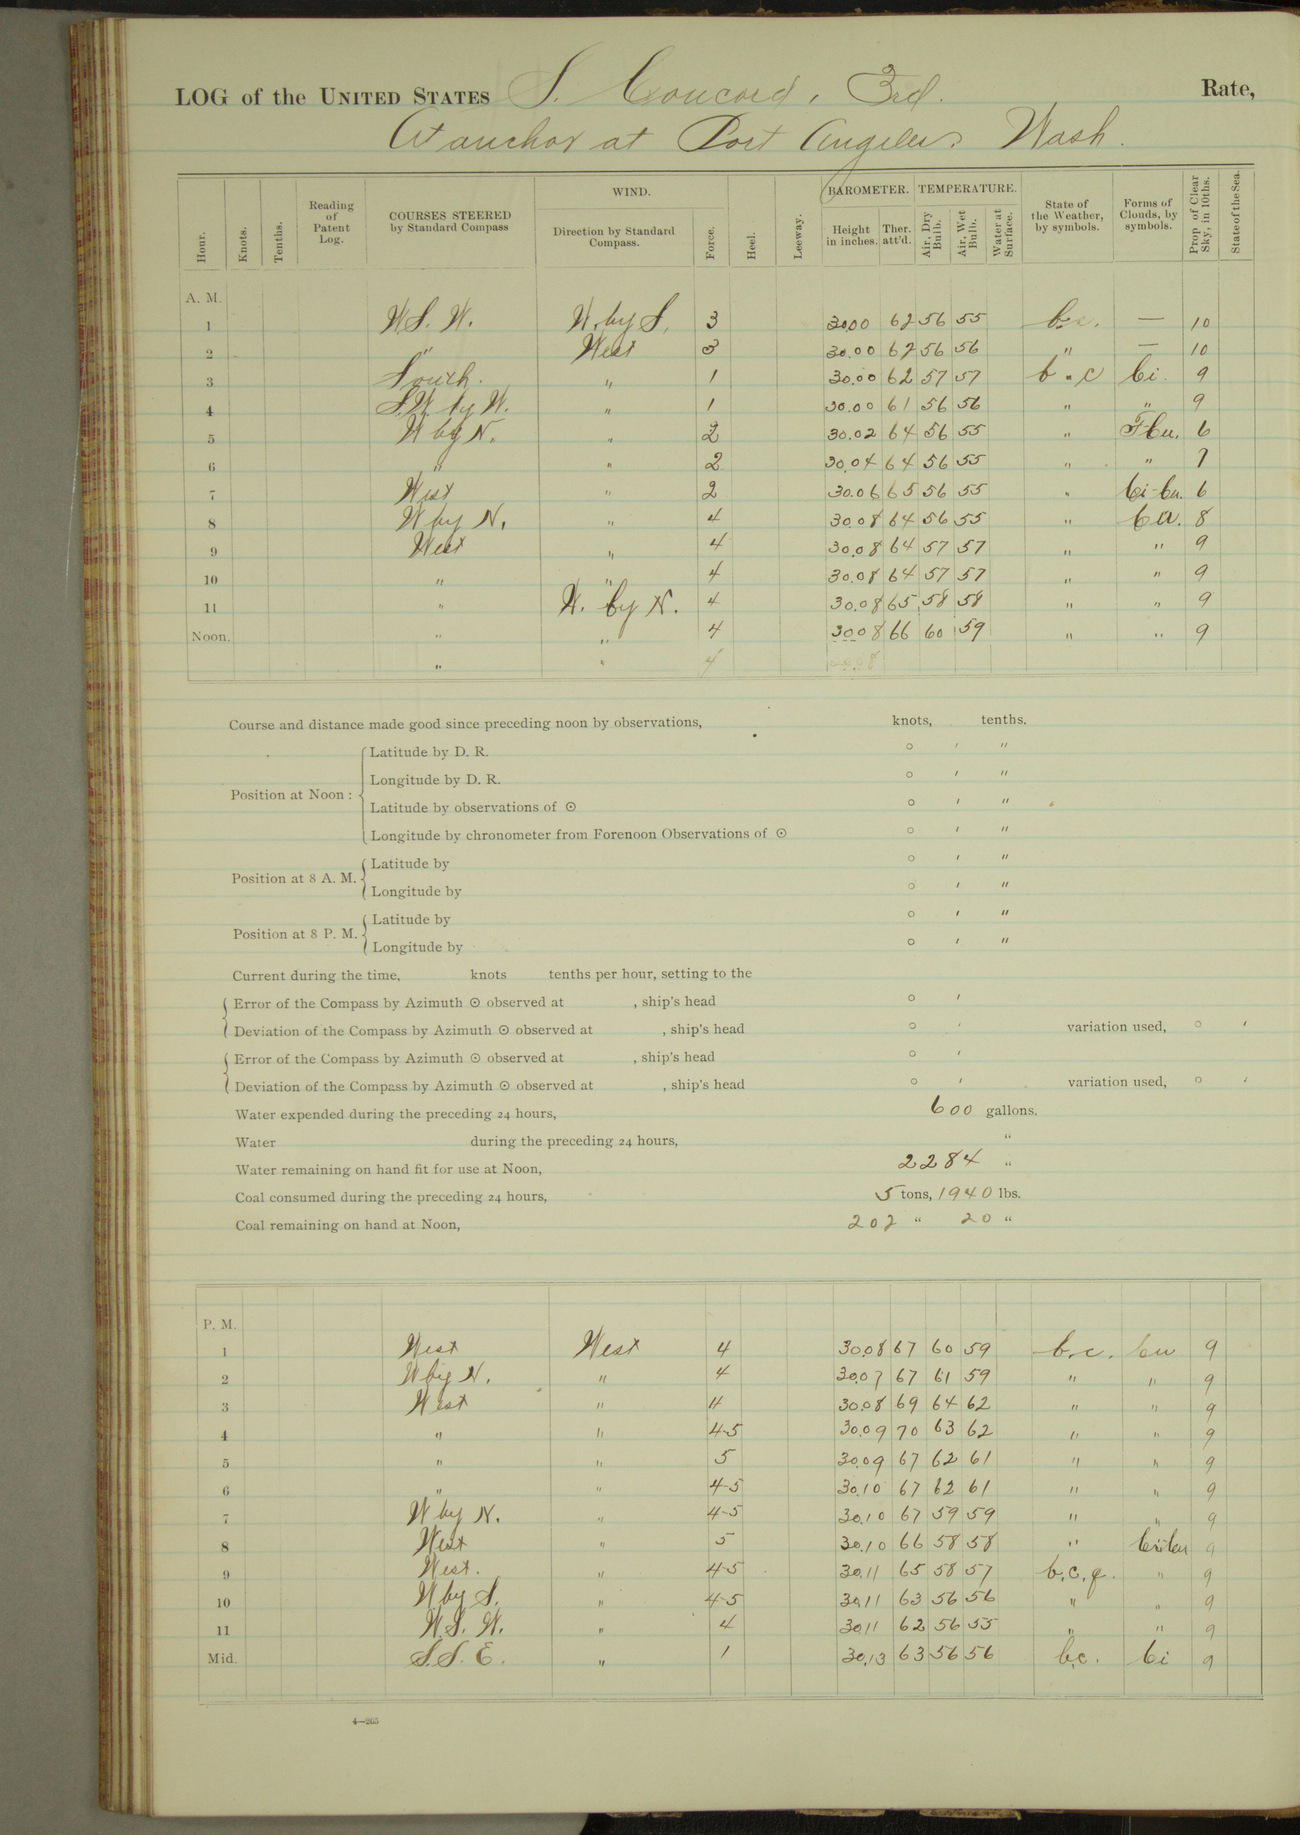 LOG of the UNITED STATES S. Concord, 3rd. Rate,
At anchor at Port Angeles, Wash.
Hour. Knots. Tenths. Reading of Patent Log. COURSES STEERED by Standard Compass WIND. Direction by Standard Compass. Force. Heel. Leeway. BAROMETER. Height in inches. Ther. att'd. TEMPERATURE. Air, Dry Bulb. Air, Wet Bulb. Water at Surface. State of the Weather, by symbols. Forms of Clouds, by symbols. Prop. of Clear Sky, in 10ths. State of the Sea.
A. M.
1 W.S.W. W. by S. 3 30.00 62 56 55 b.c. — 10
2 " West 3 30.00 62 56 56 " — 10
3 South. " 1 30.00 62 57 57 b.c Ci. 9
4 S.W. by W. " 1 30.00 61 56 56 " " 9
5 W by N. " 2 30.02 64 56 55 " Cu. 6
6 " " 2 30.04 64 56 55 " " 7
7 West " 2 30.06 65 56 55 " Ci-Cu. 6
8 W by N. " 4 30.08 64 56 55 " Cu. 8
9 West " 4 30.08 64 57 57 " " 9
10 " " 4 30.08 64 57 57 " " 9
11 " W. by N. 4 30.08 65 58 58 " " 9
Noon. " " 4 30.08 66 60 59 " " 9
" " 4
Course and distance made good since preceding noon by observations, knots, tenths.
Position at Noon :
Latitude by D. R. ° ′ ″
Longitude by D. R. ° ′ ″
Latitude by observations of ☉ ° ′ ″
Longitude by chronometer from Forenoon Observations of ☉ ° ′ ″
Position at 8 A. M.
Latitude by ° ′ ″
Longitude by ° ′ ″
Position at 8 P. M.
Latitude by ° ′ ″
Longitude by ° ′ ″
Current during the time, knots tenths per hour, setting to the
Error of the Compass by Azimuth ☉ observed at , ship's head ° ′
Deviation of the Compass by Azimuth ☉ observed at , ship's head ° ′ variation used, ° ′
Error of the Compass by Azimuth ☉ observed at , ship's head ° ′
Deviation of the Compass by Azimuth ☉ observed at , ship's head ° ′ variation used, ° ′
Water expended during the preceding 24 hours, 600 gallons.
Water during the preceding 24 hours, "
Water remaining on hand fit for use at Noon, 2284 "
Coal consumed during the preceding 24 hours, 5 tons, 1940 lbs.
Coal remaining on hand at Noon, 202 " 20 "
P. M.
1 West West 4 30.08 67 60 59 b.c. Cu 9
2 W by N. " 4 30.07 67 61 59 " " 9
3 West " 4 30.08 69 64 62 " " 9
4 " " 4-5 30.09 70 63 62 " " 9
5 " " 5 30.09 67 62 61 " " 9
6 " " 4-5 30.10 67 62 61 " " 9
7 W by N. " 4-5 30.10 67 59 59 " " 9
8 West " 5 30.10 66 58 58 " Ci-Cu 9
9 West. " 4-5 30.11 65 58 57 b.c.q. " 9
10 W by S. " 4-5 30.11 63 56 56 " " 9
11 W.S.W. " 4 30.11 62 56 55 " " 9
Mid. S.S.E. " 1 30.13 63 56 56 b.c. Ci 9
4—265